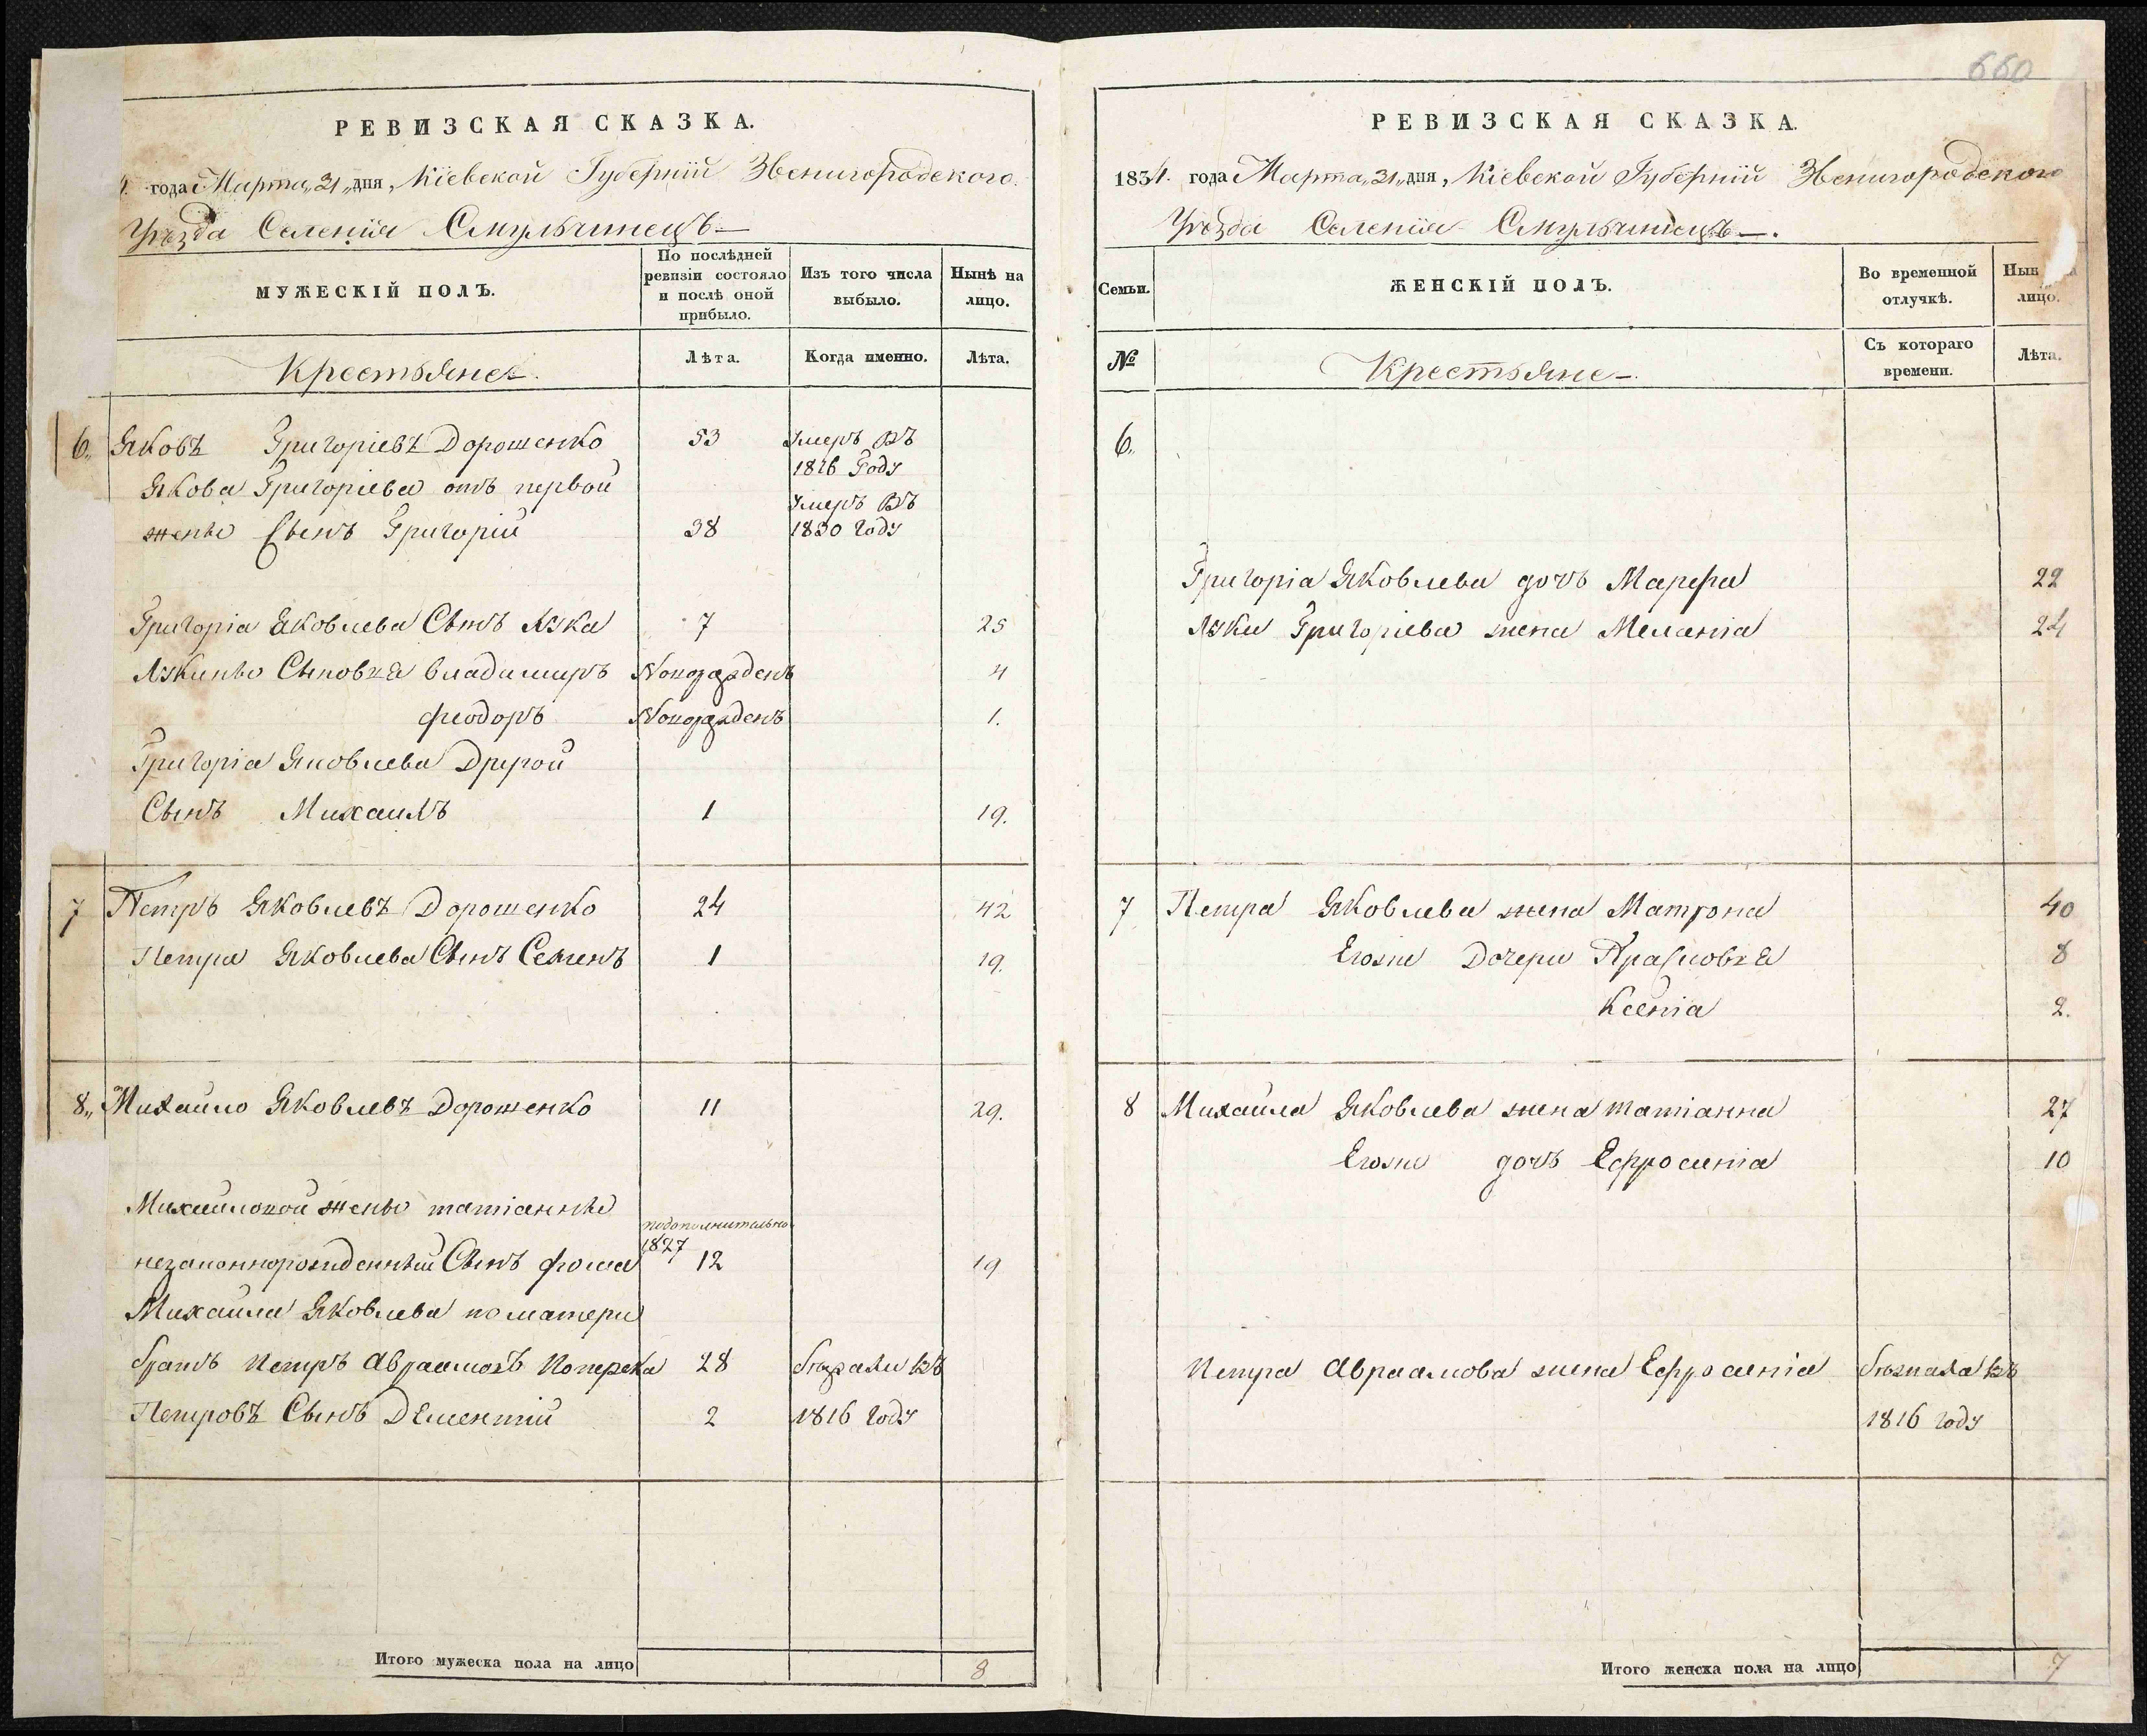 660
РЕВИЗСКАЯ СКАЗКА.
года Марта „31„ дня, Кіевской Губерніи Звенигородского
Уѣзда Селенія Смульчинецъ
МУЖЕСКІЙ ПОЛЪ.
По послѣдней
ревизіи состояло
и послѣ оной
прибыло.
Изъ того числа
выбыло.
Нынѣ на
лицо.
Крестьяне
Лѣта.
Когда именно.
Лѣта.
6. Яковъ Григоріевъ Дорошенко 53 Умеръ въ
1826 Году
Якова Григоріева отъ первой
Умеръ въ
жены Сынъ Григорій 38 1830 Году
Григоріа Яковлева Сынъ Лука 7 25
Лукины Сыновья владимиръ Новорожденъ 4
феодоръ Новорожденъ 1.
Григоріа Яковлева Другой
Сынъ Михаилъ 1 19.
7 Петръ Яковлевъ Дорошенко 24 42
Петра Яковлева Сынъ Семенъ 1 19.
8„ Михайло Яковлевъ Дорошенко 11 29.
Михайловой жены татіанны
подополнительно
1827
незаконнорожденный Сынъ фома 12 19
Михаила Яковлева по матери
братъ Петръ Авраамовъ 28 бѣжали въ
Петровъ Сынъ Дементій 2 1816 году
Итого мужеска пола на лицо 8
РЕВИЗСКАЯ СКАЗКА.
1834. года Марта „31„ дня, Кіевской Губерніи Звенигородского
Уѣзда Селенія Смульчинецъ
Семьи.
ЖЕНСКІЙ ПОЛЪ.
Во временной
отлучкѣ.
Нын
лицо.
№
Крестьяне
Съ котораго
времени.
Лѣта.
6.
Григоріа Яковлева дочь Марфа 22
Луки Григоріева жена Меланіа 24
7 Петра Яковлева жена Матрона 40
Егожъ Дочери 8
Ксеніа 2.
8 Михайла Яковлева жена татіанна 27
Егожъ дочь Ефросиніа 10
Петра Авраамова жена Ефросиніа бѣжала въ
1816 году
Итого женска пола на лицо 7